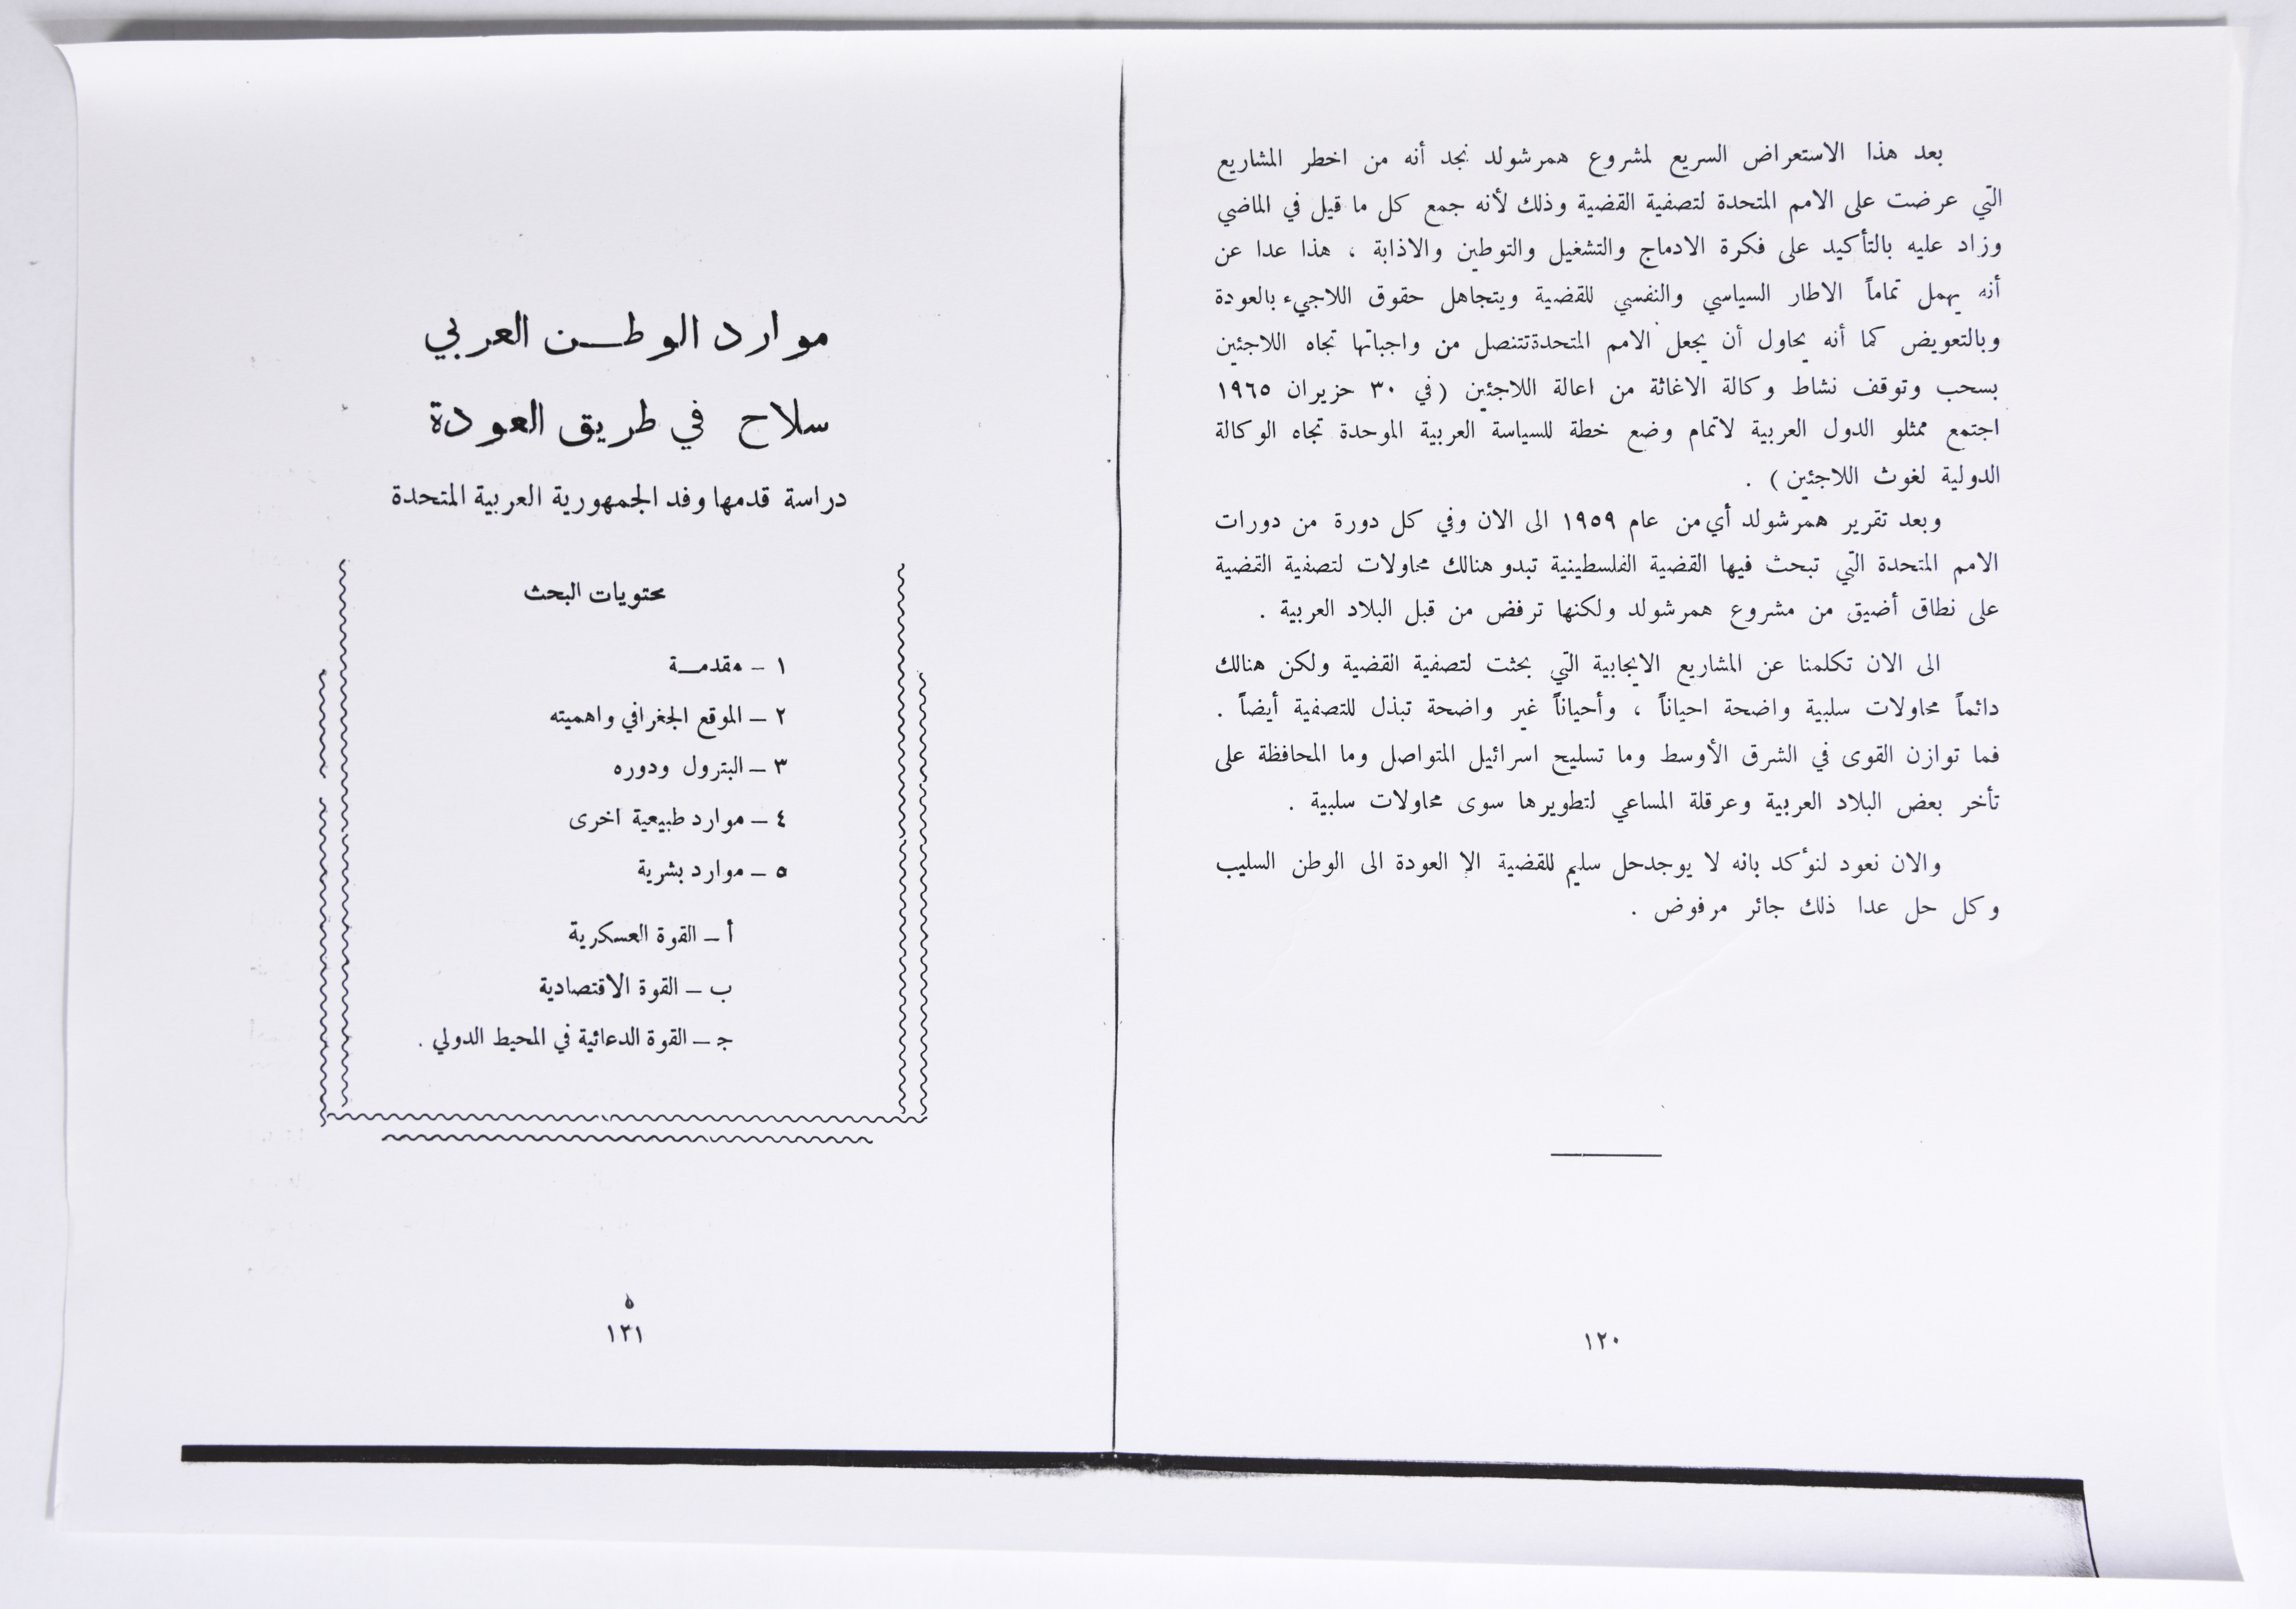 بعد هذا الاستعراض السريع لمشروع همرشولد نجد أنه من اخطر المشاريع
التي عرضت على الامم المتحدة لتصفية القضية وذلك لأنه جمع كل ما قيل في الماضي
وزاد عليه بالتأكيد على فكرة الادماج والتشغيل والتوطين والاذابة ، هذا عدا عن
أنه يهمل تماماً الاطار السياسي والنفسي للقضية ويتجاهل حقوق اللاجيء بالعودة
وبالتعويض كما أنه يحاول أن يجعل الامم المتحدة تتنصل من واجباتها تجاه اللاجئين
بسحب وتوقف نشاط وكالة الاغاثة من اعالة اللاجئين (في ٣٠ حزيران ١٩٦٥
اجتمع ممثلو الدول العربية لاتمام وضع خطة للسياسة العربية الموحدة تجاه الوكالة
الدولية لغوث اللاجئين) .
وبعد تقرير همرشولد أي من عام ١٩٥٩ الى الان وفي كل دورة من دورات
الامم المتحدة التي تبحث فيها القضية الفلسطينية تبدو هنالك محاولات لتصفية القضية
على نطاق أضيق من مشروع همرشولد ولكنها ترفض من قبل البلاد العربية .
الى الان تكلمنا عن المشاريع الايجابية التي بحثت لتصفية القضية ولكن هنالك
دائماً محاولات سلبية واضحة احياناً ، وأحياناً غير واضحة تبذل للتصفية أيضاً .
فما توازن القوى في الشرق الأوسط وما تسليح اسرائيل المتواصل وما المحافظة على
تأخر بعض البلاد العربية وعرقلة المساعي لتطويرها سوى محاولات سلبية .
والان نعود لنؤكد بانه لا يوجد حل سليم للقضية الا العودة الى الوطن السليب
وكل حل عدا ذلك جائر مرفوض .
١٢٠
موارد الوطــن العربي
سلاح في طريق العودة
دراسة قدمها وفد الجمهورية العربية المتحدة
محتويات البحث
١ – مقدمــة
٢ – الموقع الجغرافي واهميته
٣ – البترول ودوره
٤ – موارد طبيعية اخرى
٥ – موارد بشرية
أ – القوة العسكرية
ب – القوة الاقتصادية
ج – القوة الدعائية في المحيط الدولي .
١٢١